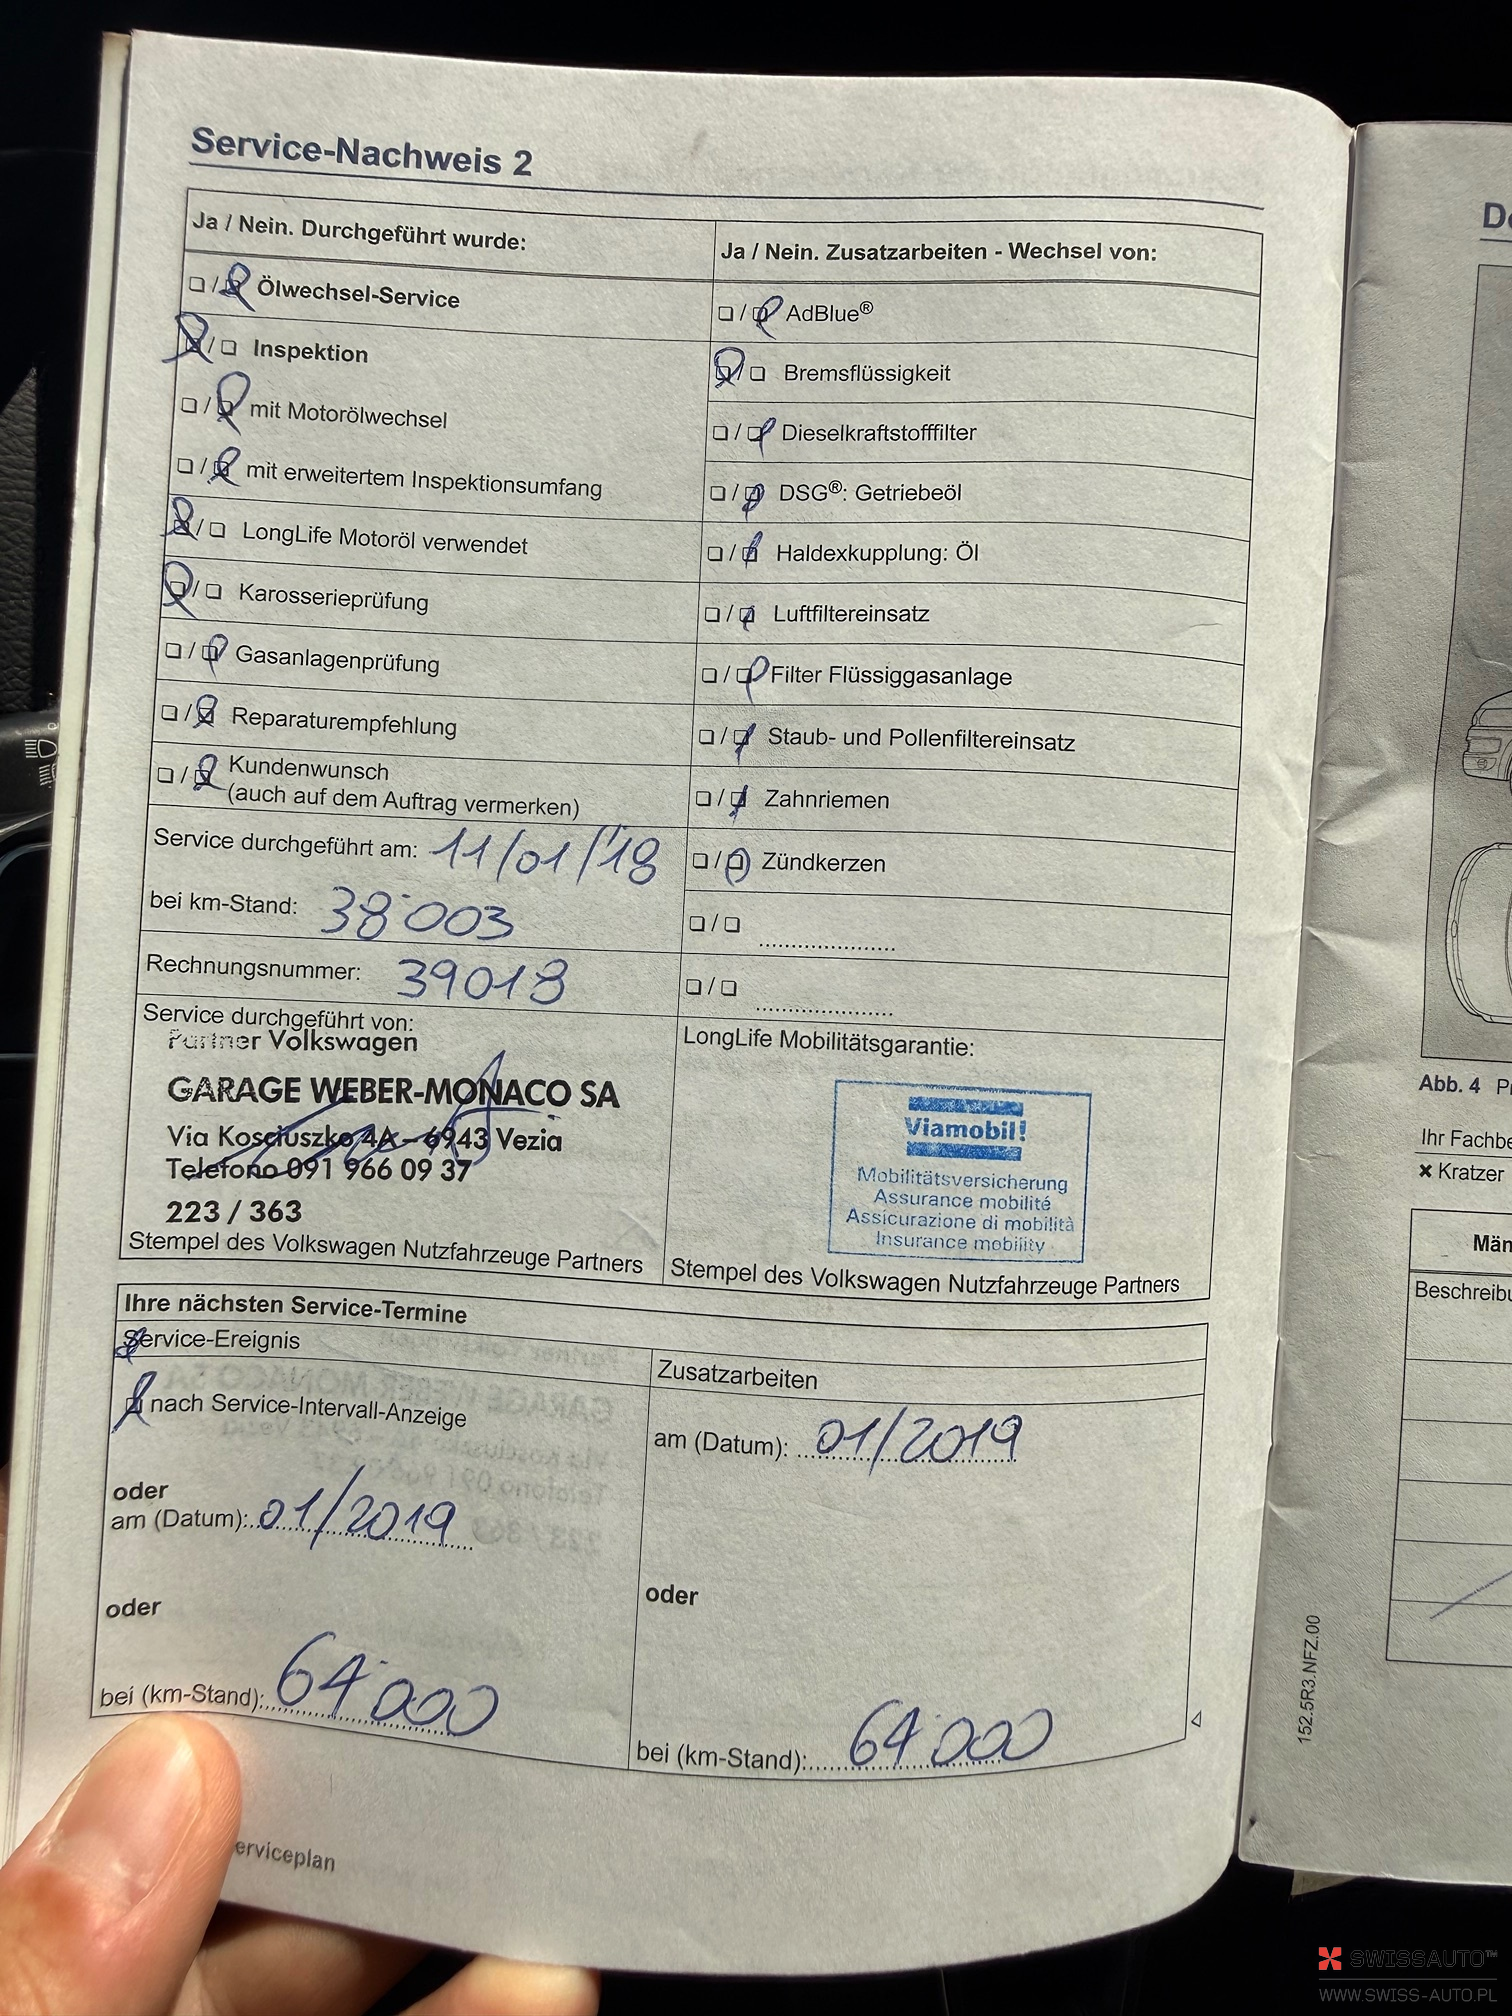 Service-Nachweis 2
Ja / Nein. Durchgeführt wurde:
❏ / ❏ Ölwechsel-Service
❏ / ❏ Inspektion
❏ / ❏ mit Motorölwechsel
❏ / ❏ mit erweitertem Inspektionsumfang
❏ / ❏ LongLife Motoröl verwendet
❏ / ❏ Karosserieprüfung
❏ / ❏ Gasanlagenprüfung
❏ / ❏ Reparaturempfehlung
❏ / ❏ Kundenwunsch
(auch auf dem Auftrag vermerken)
Service durchgeführt am: 11/01/'18
bei km-Stand: 38'003
Rechnungsnummer: 39018
Service durchgeführt von:
Partner Volkswagen
GARAGE WEBER-MONACO SA
Via Kosciuszko 4A – 6943 Vezia
Telefono 091 966 09 37
223 / 363
Stempel des Volkswagen Nutzfahrzeuge Partners
Ja / Nein. Zusatzarbeiten - Wechsel von:
❏ / ❏ AdBlue®
❏ / ❏ Bremsflüssigkeit
❏ / ❏ Dieselkraftstofffilter
❏ / ❏ DSG®: Getriebeöl
❏ / ❏ Haldexkupplung: Öl
❏ / ❏ Luftfiltereinsatz
❏ / ❏ Filter Flüssiggasanlage
❏ / ❏ Staub- und Pollenfiltereinsatz
❏ / ❏ Zahnriemen
❏ / ❏ Zündkerzen
❏ / ❏ ....................
❏ / ❏ ....................
LongLife Mobilitätsgarantie:
Viamobil!
Mobilitätsversicherung
Assurance mobilité
Assicurazione di mobilità
Insurance mobility
Stempel des Volkswagen Nutzfahrzeuge Partners
Ihre nächsten Service-Termine
Service-Ereignis
❏ nach Service-Intervall-Anzeige
oder
am (Datum): 01/2019
oder
bei (km-Stand): 64'000
Zusatzarbeiten
am (Datum): 01/2019
oder
bei (km-Stand): 64'000
erviceplan
Abb. 4
Ihr Fachbe
✖ Kratzer
Män
Beschreibu
152.5R3.NFZ.00
SWISSAUTO™
WWW.SWISS-AUTO.PL